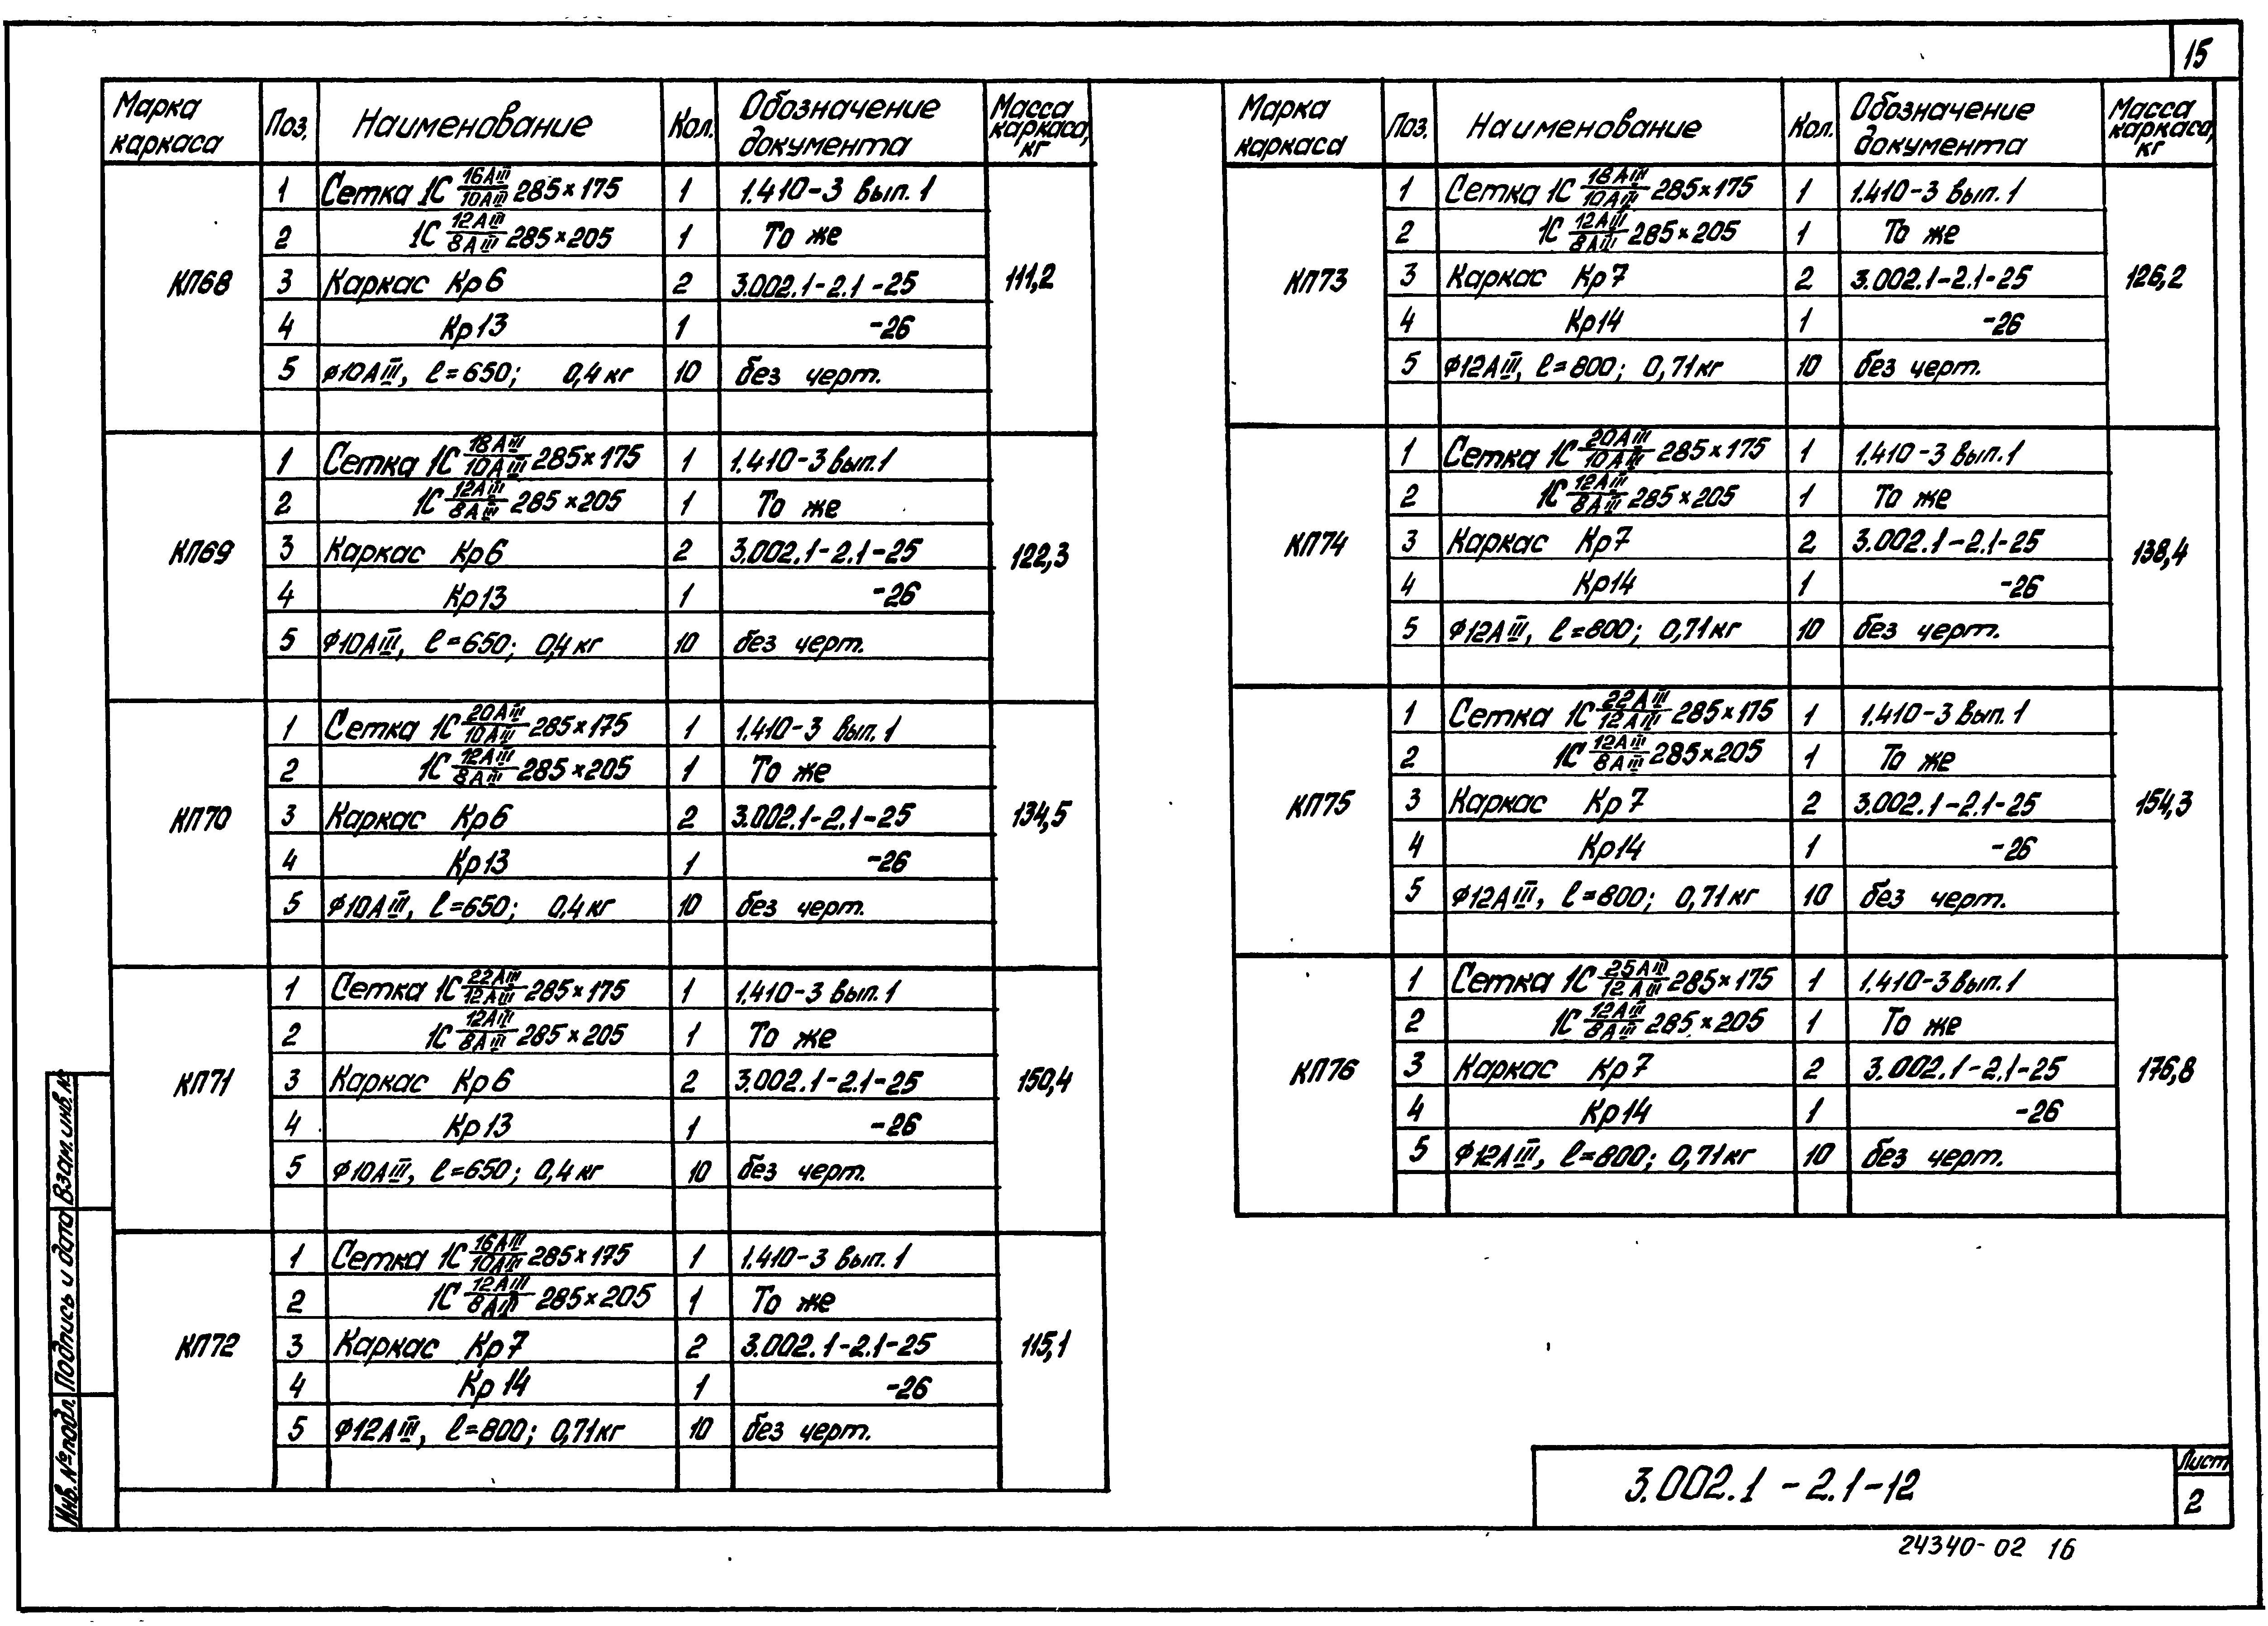 15
Марка каркаса Поз. Наименование Кол. Обозначение документа Масса каркаса, кг
1 Сетка 1С 16АIII/10АIII 285×175 1 1.410-3 вып. 1
2 1С 12АIII/8АIII 285×205 1 То же
КП68 3 Каркас Кр6 2 3.002.1-2.1-25 111,2
4 Кр13 1 -26
5 ⌀10АIII, ℓ=650; 0,4кг 10 без черт.
1 Сетка 1С 18АIII/10АIII 285×175 1 1.410-3 вып. 1
2 1С 12АIII/8АIII 285×205 1 То же
КП69 3 Каркас Кр6 2 3.002.1-2.1-25 122,3
4 Кр13 1 -26
5 ⌀10АIII, ℓ=650; 0,4кг 10 без черт.
1 Сетка 1С 20АIII/10АIII 285×175 1 1.410-3 вып. 1
2 1С 12АIII/8АIII 285×205 1 То же
КП70 3 Каркас Кр6 2 3.002.1-2.1-25 134,5
4 Кр13 1 -26
5 ⌀10АIII, ℓ=650; 0,4кг 10 без черт.
1 Сетка 1С 22АIII/12АIII 285×175 1 1.410-3 вып. 1
2 1С 12АIII/8АIII 285×205 1 То же
КП71 3 Каркас Кр6 2 3.002.1-2.1-25 150,4
4 Кр13 1 -26
5 ⌀10АIII, ℓ=650; 0,4кг 10 без черт.
1 Сетка 1С 16АIII/10АIII 285×175 1 1.410-3 вып. 1
2 1С 12АIII/8АIII 285×205 1 То же
КП72 3 Каркас Кр7 2 3.002.1-2.1-25 115,1
4 Кр14 1 -26
5 ⌀12АIII, ℓ=800; 0,71кг 10 без черт.
Марка каркаса Поз. Наименование Кол. Обозначение документа Масса каркаса, кг
1 Сетка 1С 18АIII/10АIII 285×175 1 1.410-3 вып. 1
2 1С 12АIII/8АIII 285×205 1 То же
КП73 3 Каркас Кр7 2 3.002.1-2.1-25 126,2
4 Кр14 1 -26
5 ⌀12АIII, ℓ=800; 0,71кг 10 без черт.
1 Сетка 1С 20АIII/10АIII 285×175 1 1.410-3 вып. 1
2 1С 12АIII/8АIII 285×205 1 То же
КП74 3 Каркас Кр7 2 3.002.1-2.1-25 138,4
4 Кр14 1 -26
5 ⌀12АIII, ℓ=800; 0,71кг 10 без черт.
1 Сетка 1С 22АIII/12АIII 285×175 1 1.410-3 вып. 1
2 1С 12АIII/8АIII 285×205 1 То же
КП75 3 Каркас Кр7 2 3.002.1-2.1-25 154,3
4 Кр14 1 -26
5 ⌀12АIII, ℓ=800; 0,71кг 10 без черт.
1 Сетка 1С 25АIII/12АIII 285×175 1 1.410-3 вып. 1
2 1С 12АIII/8АIII 285×205 1 То же
КП76 3 Каркас Кр7 2 3.002.1-2.1-25 176,8
4 Кр14 1 -26
5 ⌀12АIII, ℓ=800; 0,71кг 10 без черт.
Инв. № подл. Подпись и дата Взам. инв. №
3.002.1-2.1-12
Лист
2
24340-02 16